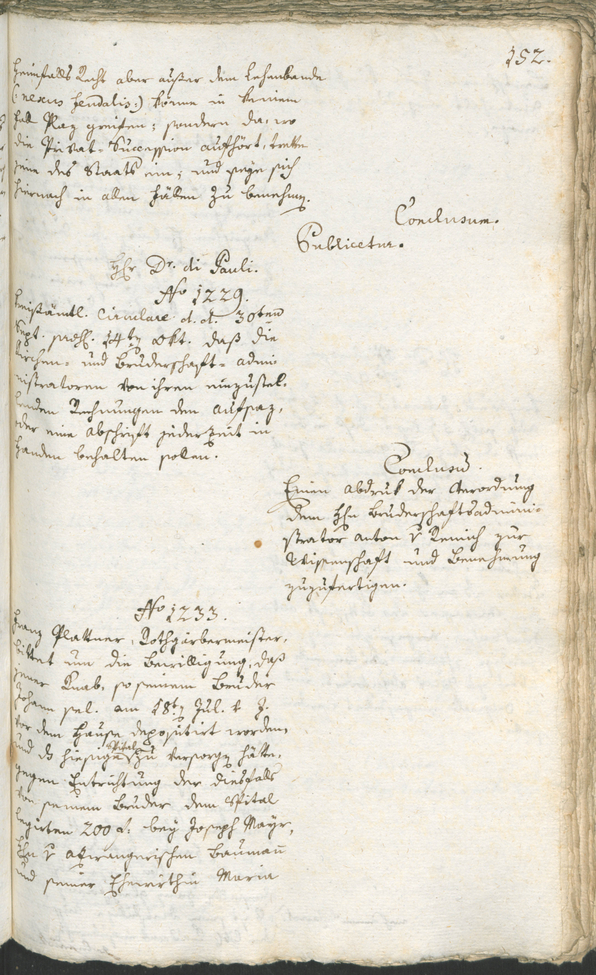 152.
Heimfalls Recht aber außer dem Lehenbande
(: nexus feudalis :) könne in keinem
Fall Plaz greifen; sondern da, wo
die Privat-Sucession aufhört, trette
jene des Staats ein; und seye sich
hiernach in allen Fällen zu benehmen.
Conclusum.
Publicetur.
Hr. Dr. di Pauli.
No 1229.
Kreisämtl. Circulare d. d. 30ten
Sept. präs. 14ten Okt. daß die
Kirchen- und Bruderschaft-admi-
nistratoren von ihren einzustel-
lenden Rechnungen den Aufsaz,
oder eine Abschrift jederzeit in
Handen behalten sollen.
Conclusum.
Einen Abdruk der Verordnung
dem Hrn Bruderschaftsadmini-
strator Anton v Remich zur
Wissenschaft und Benehmung
zuzufertigen.
No 1233.
Franz Plattner, Rothgärbermeister,
bittet um die Bewilligung, daß
jener Knab, so seinem Bruder
Johann sel. am 18ten Jul. d. J.
vor dem Hause depositirt worden,
und das hiesige Spital zu versorgen hätte,
gegen Entrichtung der diesfalls
von seinem Bruder dem Spital
legirten 200 f. bey Joseph Mayr,
Hrn v Baumann
und seiner Ehewirthin Maria